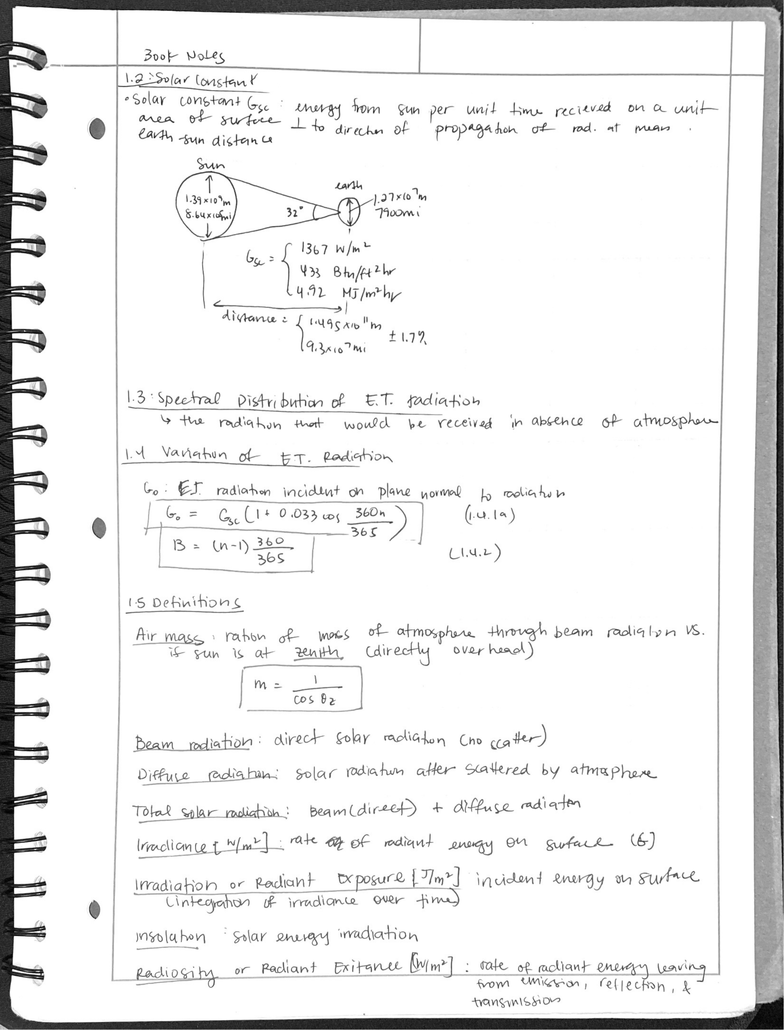 Book Notes
1.2: Solar Constant
• Solar constant Gsc : energy from sun per unit time recieved on a unit
area of surface ⊥ to direction of propagation of rad. at mean
earth-sun distance
Sun
earth
1.39×10⁹m
8.64×10⁵mi
32°
1.27×10⁷m
7900mi
Gsc = { 1367 W/m²
433 Btu/ft²hr
4.92 MJ/m²hr
distance = { 1.495×10¹¹m
9.3×10⁷mi
± 1.7%
1.3: Spectral Distribution of E.T. radiation
↳ the radiation that would be received in absence of atmosphere
1.4 Variation of ET. Radiation
G₀ : E.T. radiation incident on plane normal to radiation
G₀ = Gsc (1 + 0.033 cos 360n/365) (1.4.1a)
B = (n-1) 360/365 (1.4.2)
1.5 Definitions
Air mass : ration of mass of atmosphere through beam radiation vs.
if sun is at zenith (directly overhead)
m = 1/cos θz
Beam radiation : direct solar radiation (no scatter)
Diffuse radiation: solar radiation after scattered by atmosphere
Total solar radiation : Beam (direct) + diffuse radiation
Irradiance [W/m²] : rate of radiant energy on surface (G)
Irradiation or Radiant Exposure [J/m²] incident energy on surface
(integration of irradiance over time)
insolation : solar energy irradiation
Radiosity or Radiant Exitance [W/m²] : rate of radiant energy leaving
from emission, reflection, &
transmission